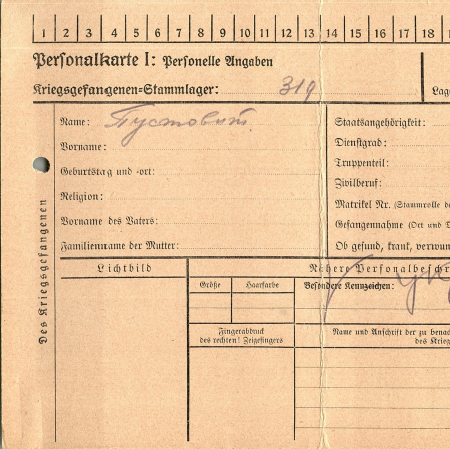 1 2 3 4 5 6 7 8 9 10 11 12 13 14 15 16 17 18
Personalkarte I: Personelle Angaben
Kriegsgefangenen=Stammlager: 319
Lag
Des Kriegsgefangenen
Name: Пустовит.
Vorname:
Geburtstag und -ort:
Religion:
Vorname des Vaters:
Familienname der Mutter:
Staatsangehörigkeit:
Dienstgrad:
Truppenteil:
Zivilberuf:
Matrikel Nr. (Stammrolle de
Gefangennahme (Ort und D
Ob gesund, krank, verwun
Lichtbild
Nähere Personalbeschr
Größe
Haarfarbe
Besondere Kennzeichen:
Fingerabdruck
des rechten! Zeigefingers
Name und Anschrift der zu benac
des Krieg